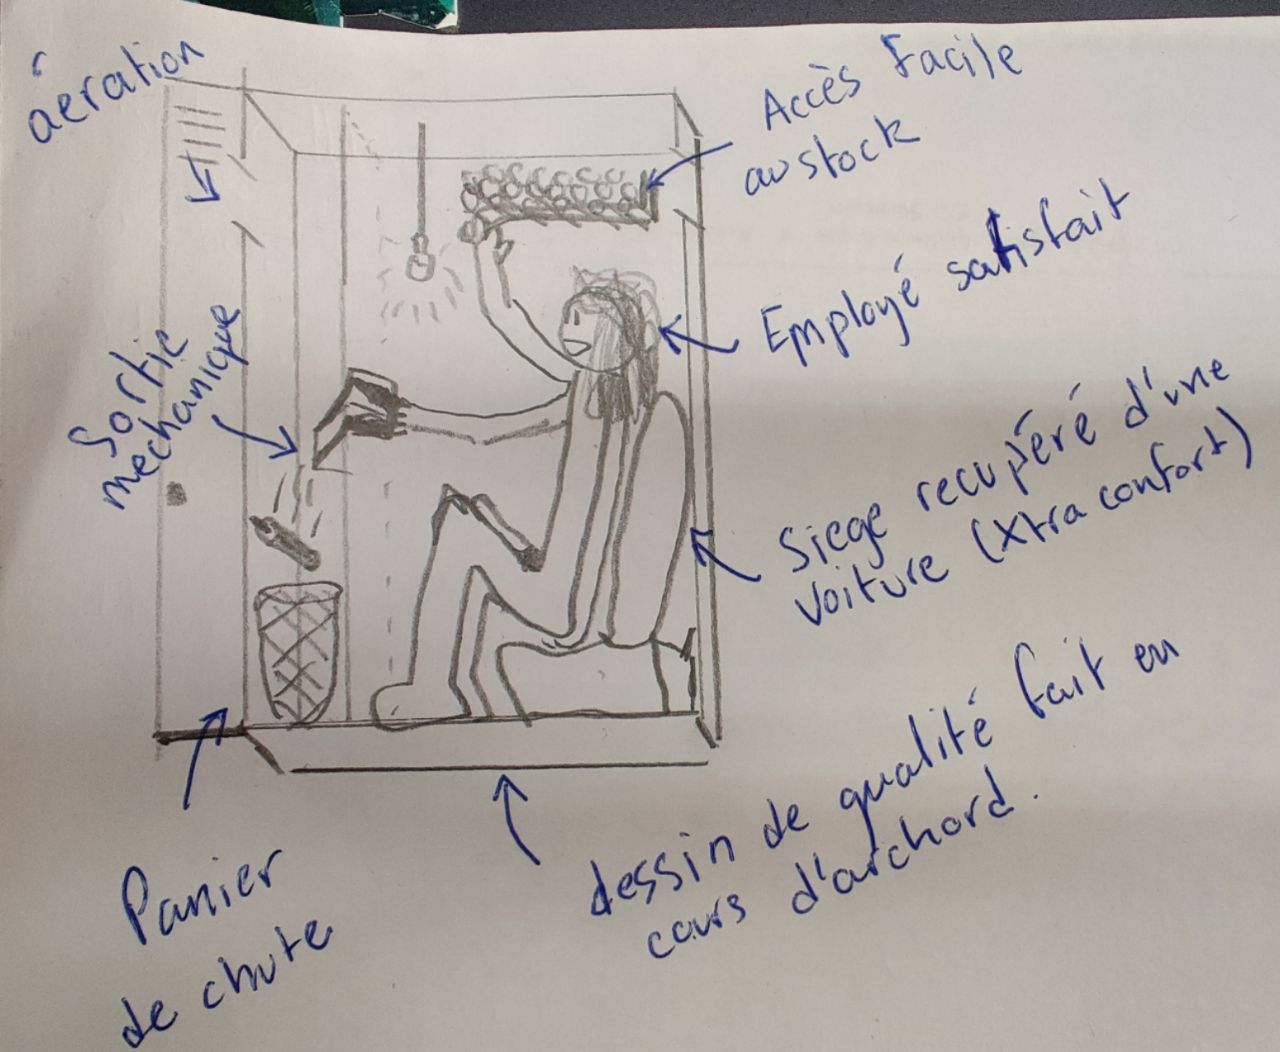 áeration
Accès facile
au stock
Employé satisfait
Sortie
méchanique
Siege recupéré d'une
voiture (Xtra confort)
dessin de qualité fait en
cours d'archord.
Panier
de chute